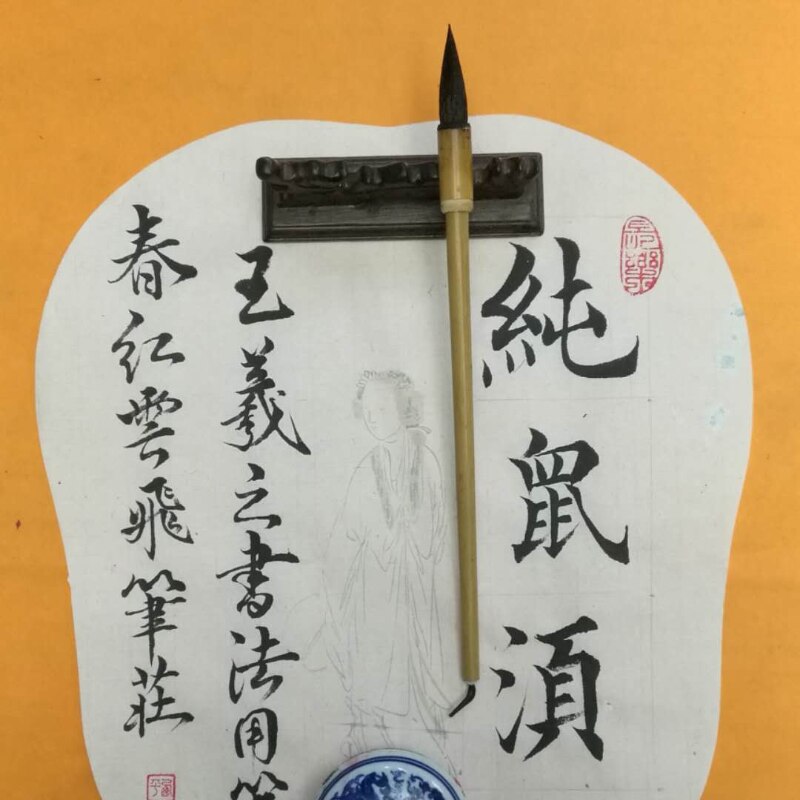 純鼠湏
王羲之書法用
春紅雲飛筆莊